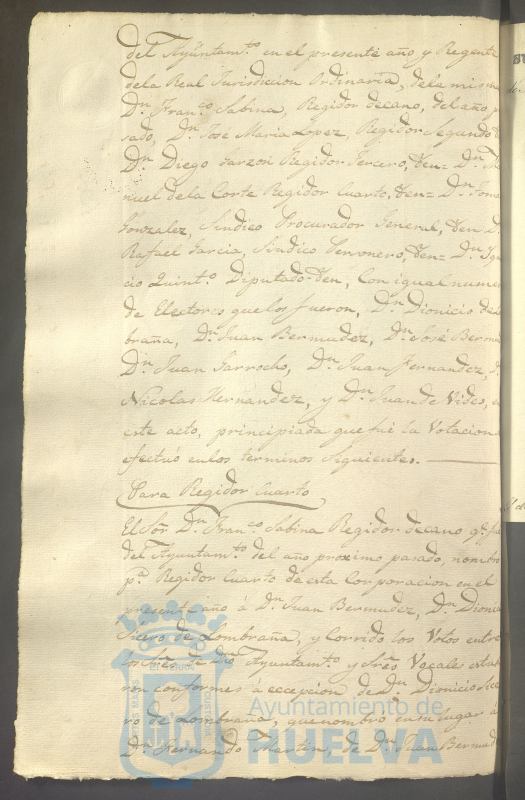 del Ayuntam.to en el presente año y Regente
dela Real Jurisdiccion Ordinaria, dela misma
Dn. Fran.co Sabina, Regidor decano, del año p
sado, Dn. Jose Maria Lopez, Regidor Segundo
Dn. Diego Garzon Regidor Tercero, Iden= Dn. Ma
nuel dela Corte Regidor Cuarto, Iden= Dn. Tome
Gonzalez, Sindico Procurador General, Iden D.
Rafael Garcia, Sindico Personero, Iden= Dn. Igna
cio Quint.o Diputado Iden, Con igual numer
de Electores quelos fueron, Dn. Dionicio de
braña, Dn. Juan Bermudez, Dn. José Bermu
Dn. Juan Garrocho, Dn. Juan Fernandez, D.
Nicolas Hernandez, y Dn. Juan de Vides, en
este acto, principiada que fué la Votacion
efectuó enlos terminos siguientes.
Para Regidor Cuarto
El Sor. Dn. Fran.co Sabina Regidor decano q.e fué
del Ayuntam.to del año proximo pasado, nombró
p.a Regidor Cuarto de esta Corporacion en el
presente año á Dn. Juan Bermudez, Dn. Dionic
Sicero de Lombraña, y Corrido los Votos entre
los Sres. de Dho Ayuntam.to y Sres. Vocales estuvie
ron conformes á ecepcion de Dn. Dionicio Sice
ro de Lombraña, que nombró en su lugar á
Dn. Fernando Martin, de Dn. Juan Bermud
Ayuntamiento de
HUELVA